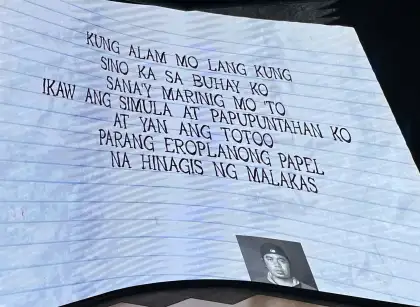 KUNG ALAM MO LANG KUNG
SINO KA SA BUHAY KO
SANA'Y MARINIG MO 'TO
IKAW ANG SIMULA AT PAPUPUNTAHAN KO
AT YAN ANG TOTOO
PARANG EROPLANONG PAPEL
NA HINAGIS NG MALAKAS